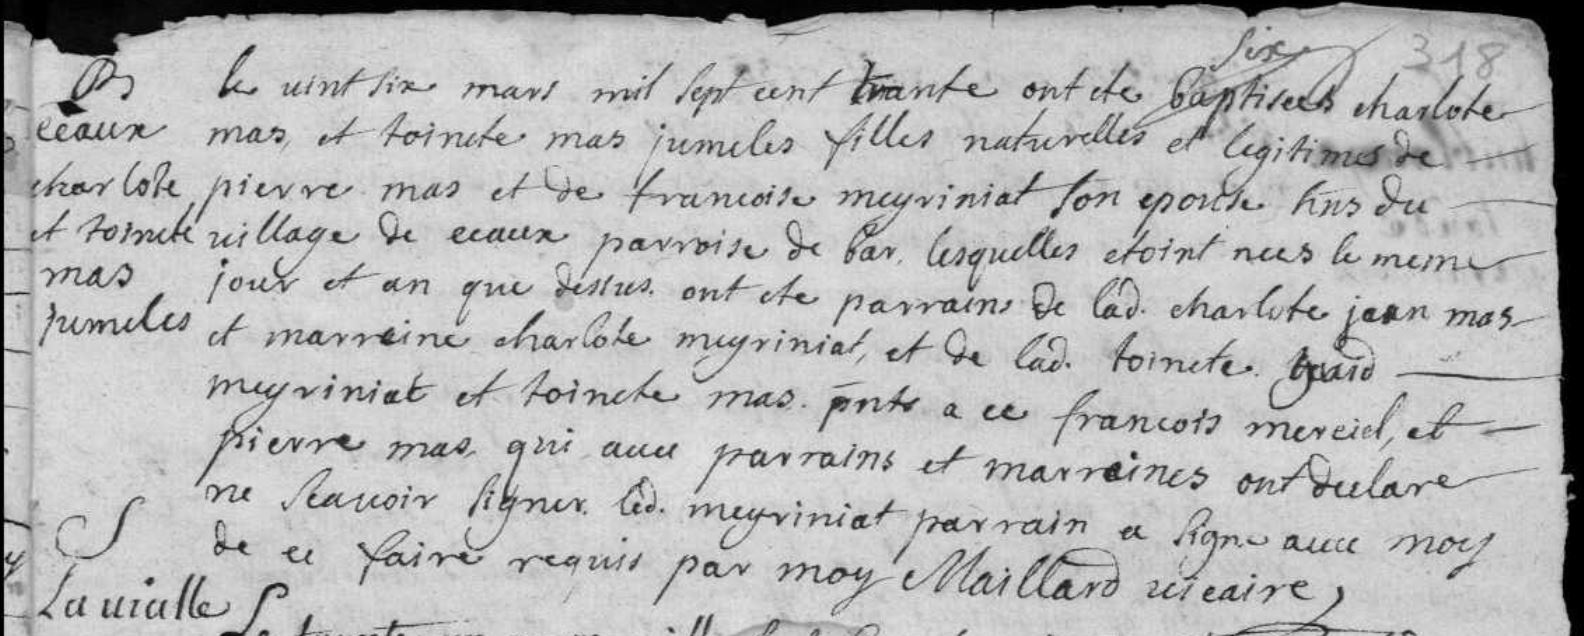 six
318
B
le vint six mars mil sept cent trante ont ete baptisees charlote
eeaux
mas, et toinete mas jumeles filles naturelles et legitimes de
charlote
pierre mas et de francoise meyriniat son epouse hns du
et toinete
village de eeaux parroise de bar. lesquelles etoint nees le meme
mas
jour et an que dessus. ont ete parrains de lad. charlote jean mas
jumeles
et marreine charlote meyriniat, et de lad. toinete.
meyriniat et toinete mas. pnts a ce francois merciel, et
pierre mas, qui avec parrains et marreines ont declare
ne scavoir signer. led. meyriniat parrain a signe avec moy
S
de ce faire requis par moy Maillard vicaire
Lavialle